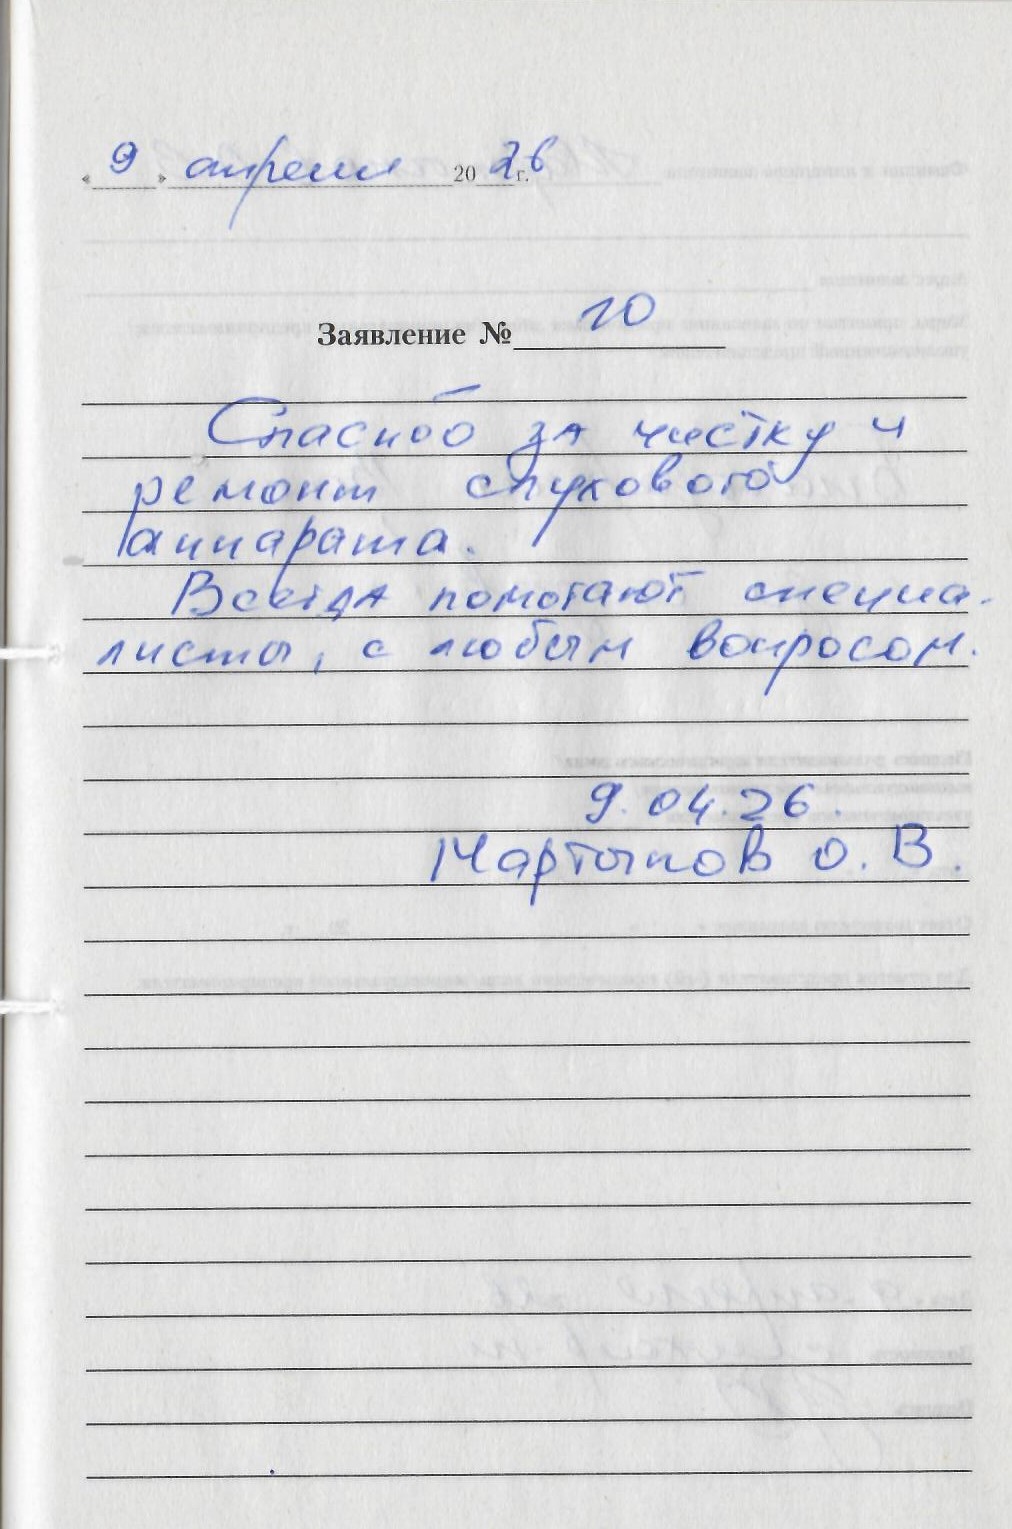 « 9 » апреля 2026 г.
Заявление № 10
Спасибо за чистку и
ремонт слухового
аппарата.
Всегда помогают специа-
листы, с любым вопросом.
9.04.26.
Мартынов О.В.